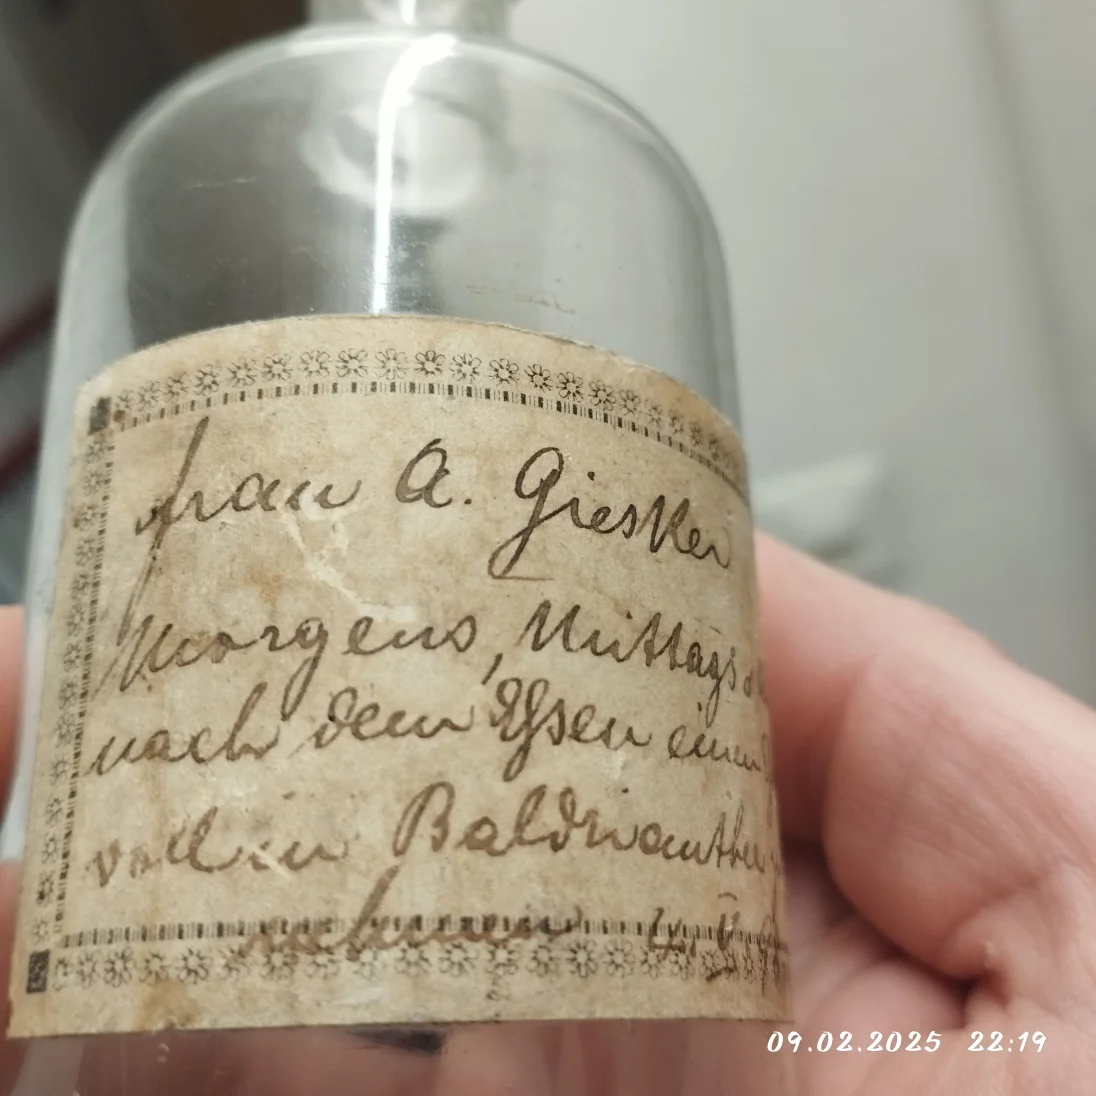 Frau A. Giesker
Morgens, Mittags
nach dem Essen einen
voll in Baldrianthee
nehmen 4. V
09.02.2025 22:19